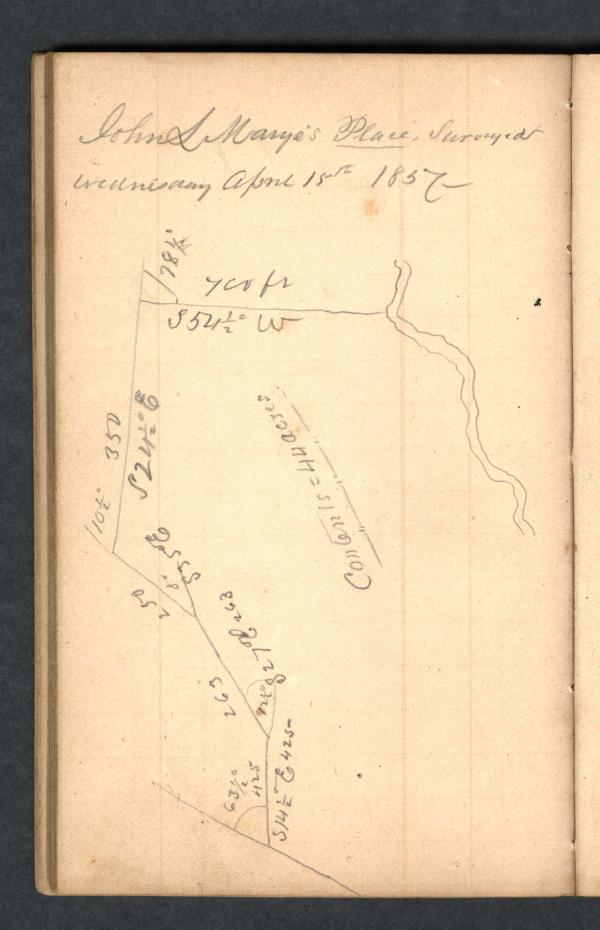 John L Marye's Place. Surveyed
Wednesday April 15th 1857
78½°
700 ft
S 54½° W
350
S 24½° E
10½°
Contents = 44 acres
S 35 E
8°
250
263
S 27 E 263
12½°
63½°
425
S 14½° E 425